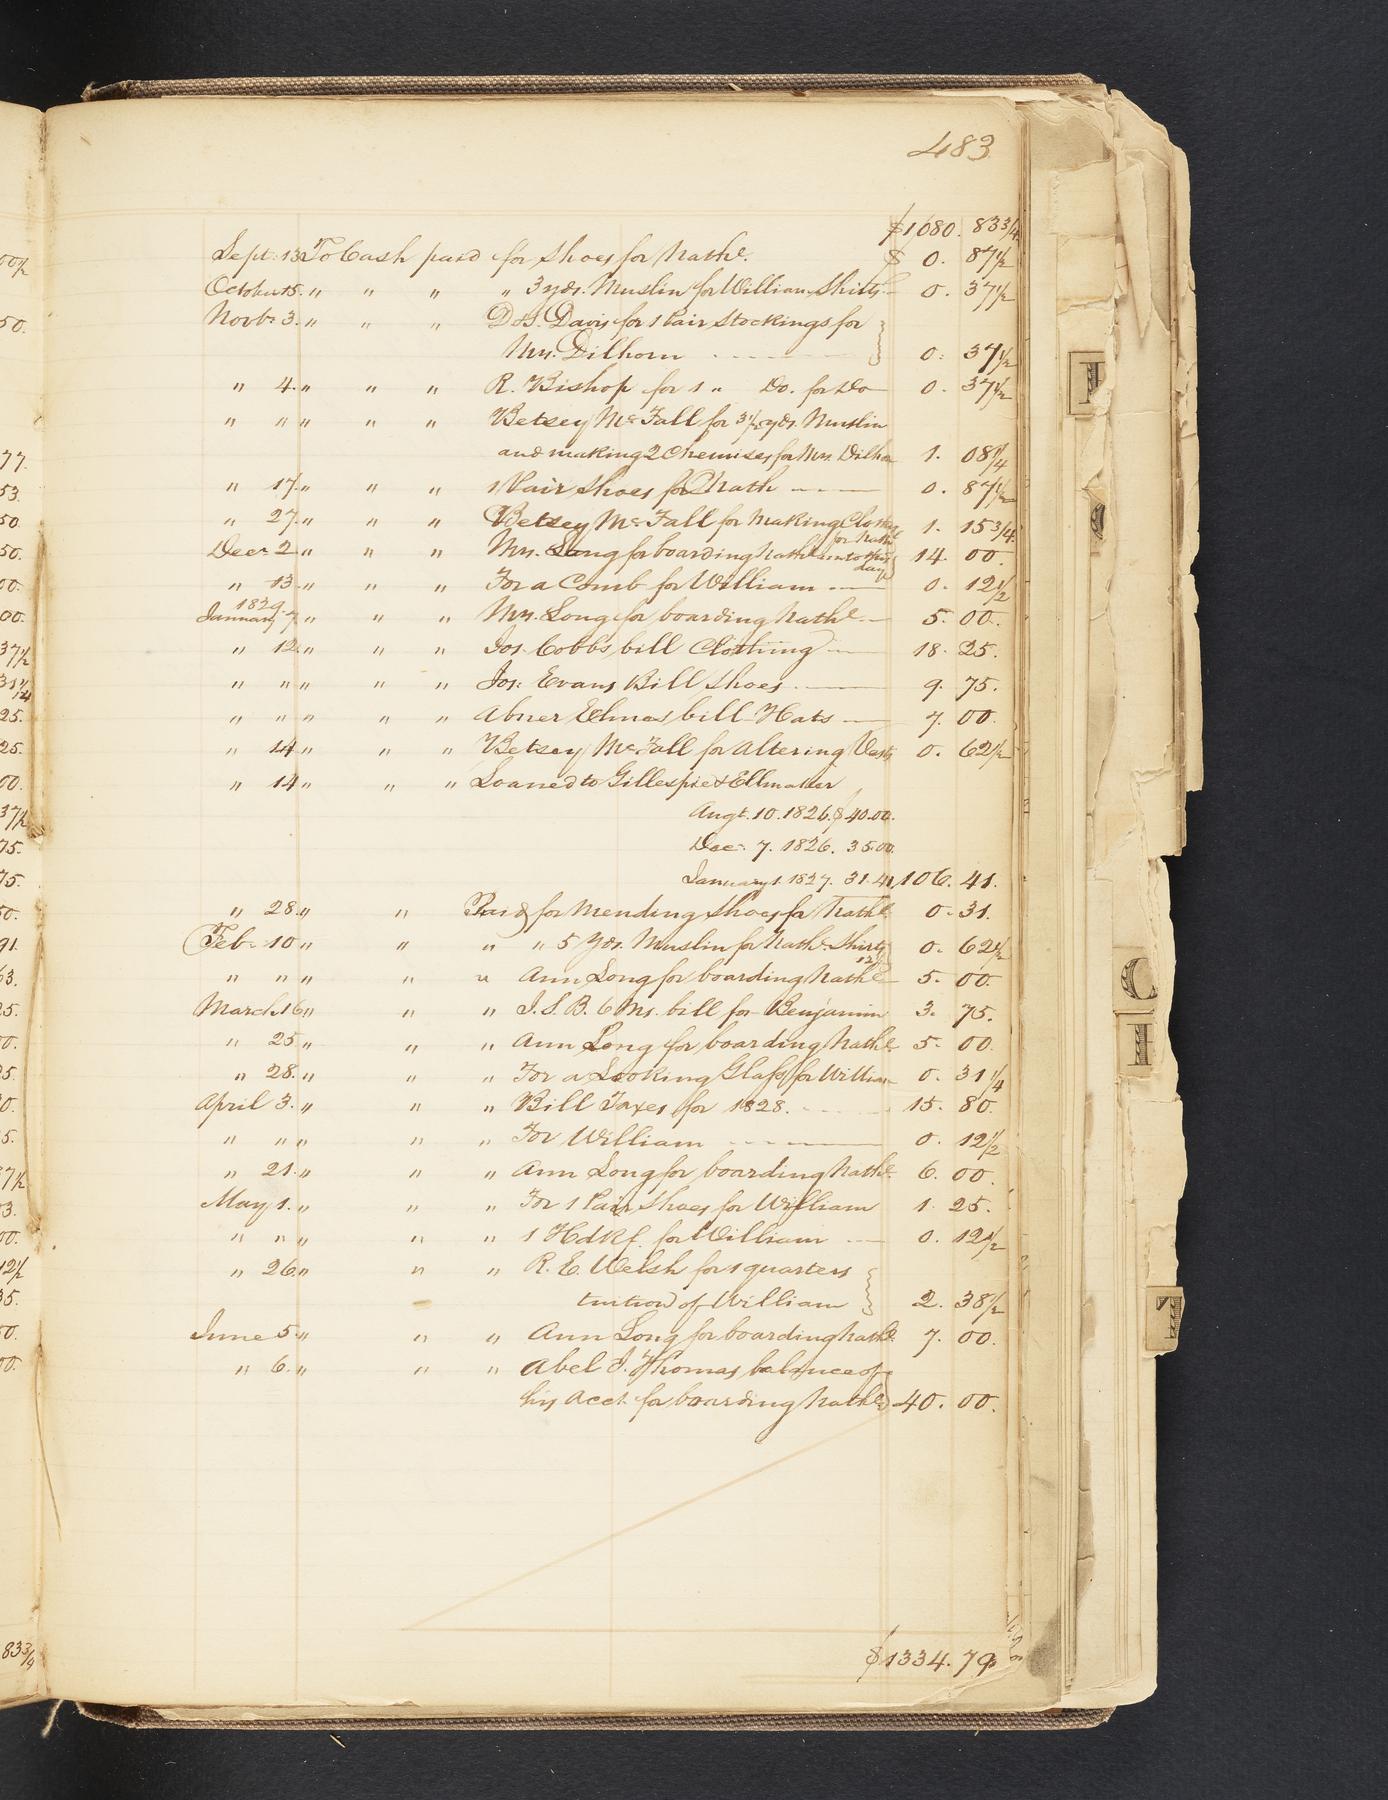 483
$1,080. 83 3/4
Sept. 13 To Cash paid for Shoes for Nathl. $ 0. 87 1/2
October 15. " " " " 3 yds. Muslin for William Shirts 0. 37 1/2
Novbr 3. " " " D. S. Davis for 1 Pair Stockings for
Mrs. Dilhorn 0. 37 1/2
" 4. " " " R. Bishop for 1 " Do. for Do 0. 37 1/2
" " " " " Betsey McFall for 3 1/2 yds. Muslin
and making 2 Chemises for Mrs. Dilhn 1. 08 1/4
" 17. " " " 1 Pair Shoes for Nath 0. 87 1/2
" 27. " " " Betsey McFall for Making Clothes for Nathl 1. 15 3/4
Decr 2. " " " Mrs. Long for boarding Nathl unto this day 14. 00.
" 13. " " " For a Comb for William 0. 12 1/2
1829.
January 7. " " " Mrs. Long for boarding Nathl. 5. 00.
" 12. " " " Jos. Cobbs bill Clothing 18. 25.
" " " " " Jos: Evans Bill Shoes 9. 75.
" " " " " Abner Elmes bill Hats 7. 00.
" 14 " " " Betsey McFall for Altering Vests 0. 62 1/2
" 14 " " " Loaned to Gillespie & Ellmaker
Augt. 10. 1826. $40.00.
Decr. 7. 1826. 35.00.
January 1. 1827. 31.41 106. 41.
" 28. " " Paid for Mending Shoes for Nathl 0. 31.
Feb. 10 " " " " 5 Yds. Muslin for Nathl. Shirts 12 1/2 0. 62 1/2
" " " " " Ann Long for boarding Nathl 5. 00.
March 16 " " " J. S. B. & Ms. bill for Benjamin 3. 75.
" 25 " " " Ann Long for boarding Nathl. 5. 00.
" 28. " " " For a Looking Glass for William 0. 31 1/4
April 3. " " " Bill Taxes for 1828. 15. 80.
" " " " " For William 0. 12 1/2
" 21. " " " Ann Long for boarding Nathl. 6. 00.
May 1. " " " For 1 Pair Shoes for William 1. 25.
" " " " " 1 Hdkf. for William 0. 12 1/2
" 26. " " " R. E. Welsh for 1 quarters
tuition of William 2. 38 1/2
June 5. " " " Ann Long for boarding Nathl. 7. 00.
" 6. " " " Abel J. Thomas balance of
his Acct. for boarding Nathl. 40. 00.
$1334. 79